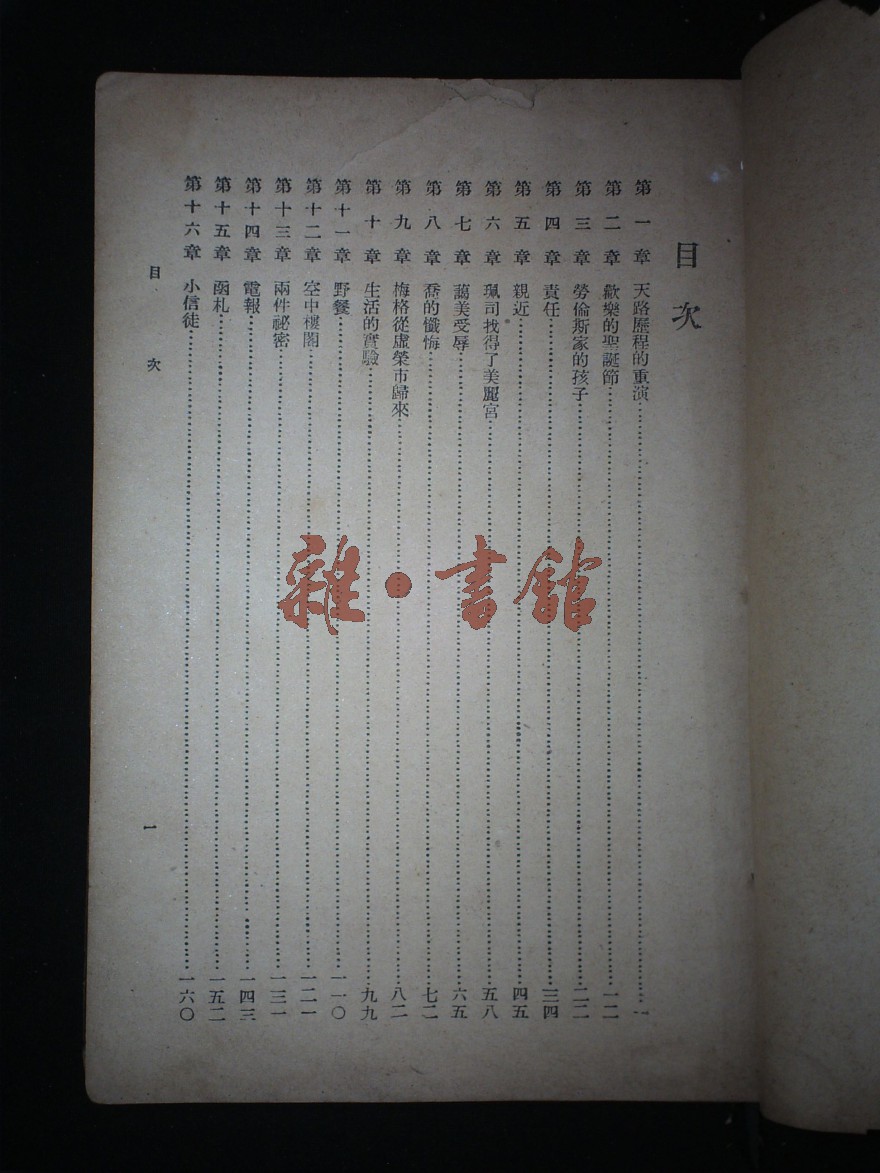 目次
第一章 天路歷程的重演……一
第二章 歡樂的聖誕節……一二
第三章 勞倫斯家的孩子……二二
第四章 責任……三四
第五章 親近……四五
第六章 珮司找得了美麗宮……五八
第七章 藹美受辱……六五
第八章 喬的懺悔……七二
第九章 梅格從虛榮市歸來……八二
第十章 生活的實驗……九九
第十一章 野餐……一一〇
第十二章 空中樓閣……一二一
第十三章 兩件祕密……一三一
第十四章 電報……一四三
第十五章 函札……一五二
第十六章 小信徒……一六〇
目次 一
雜·書館